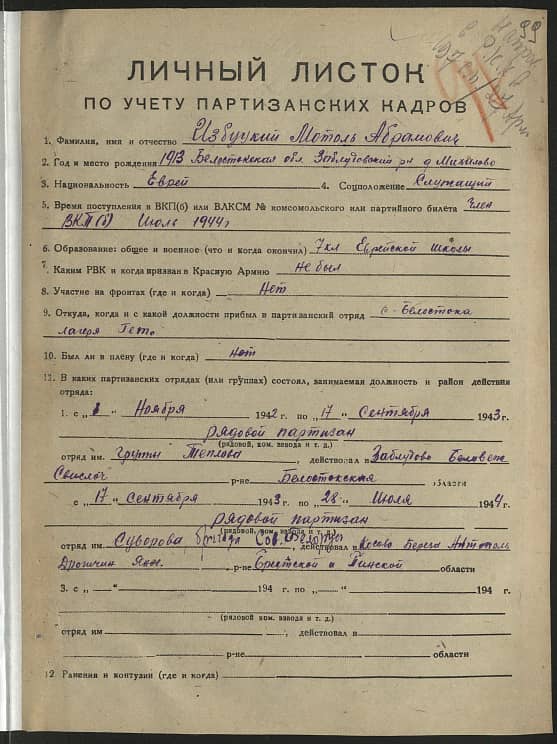 99
ЛИЧНЫЙ ЛИСТОК
ПО УЧЕТУ ПАРТИЗАНСКИХ КАДРОВ
1. Фамилия, имя и отчество Избуцкий Мотоль Абрамович
2. Год и место рождения 1913 Белостокская обл. Заблудовский рн д. Михалово
3. Национальность Еврей 4. Соцположение Служащий
5. Время поступления в ВКП(б) или ВЛКСМ № комсомольского или партийного билета Член
ВКП(б) Июль 1944г
6. Образование: общее и военное (что и когда окончил) 7 кл Еврейской школы
7. Каким РВК и когда призван в Красную Армию не был
8. Участие на фронтах (где и когда) Нет
9. Откуда, когда и с какой должности прибыл в партизанский отряд с. Белостока
лагеря Гето
10. Был ли в плену (где и когда) нет
11. В каких партизанских отрядах (или группах) состоял, занимаемая должность и район действия
отряда:
1. с „ 1 “ Ноября 1942 г. по „ 17 “ Сентября 1943 г.
рядовой партизан
(рядовой, ком. взвода и т. д.)
отряд им. группы Теплова, действовал в Заблудово Беловеж
Свислоч р-не Белостокская области
с „ 17 “ Сентября 1943 г. по „ 28 “ Июля 1944 г.
рядовой партизан
(рядовой, ком. взвода и т. д.)
отряд им. Суворова бригада Сов. Белорус, действовал в Косово Береза Антополь
Дрогичин Янов. р-не Брестской и Пинской области
3. с „ “ 194 г. по „ “ 194 г.
(рядовой, ком. взвода и т. д.)
отряд им , действовал в
р-не области
12 Ранения и контузии (где и когда)